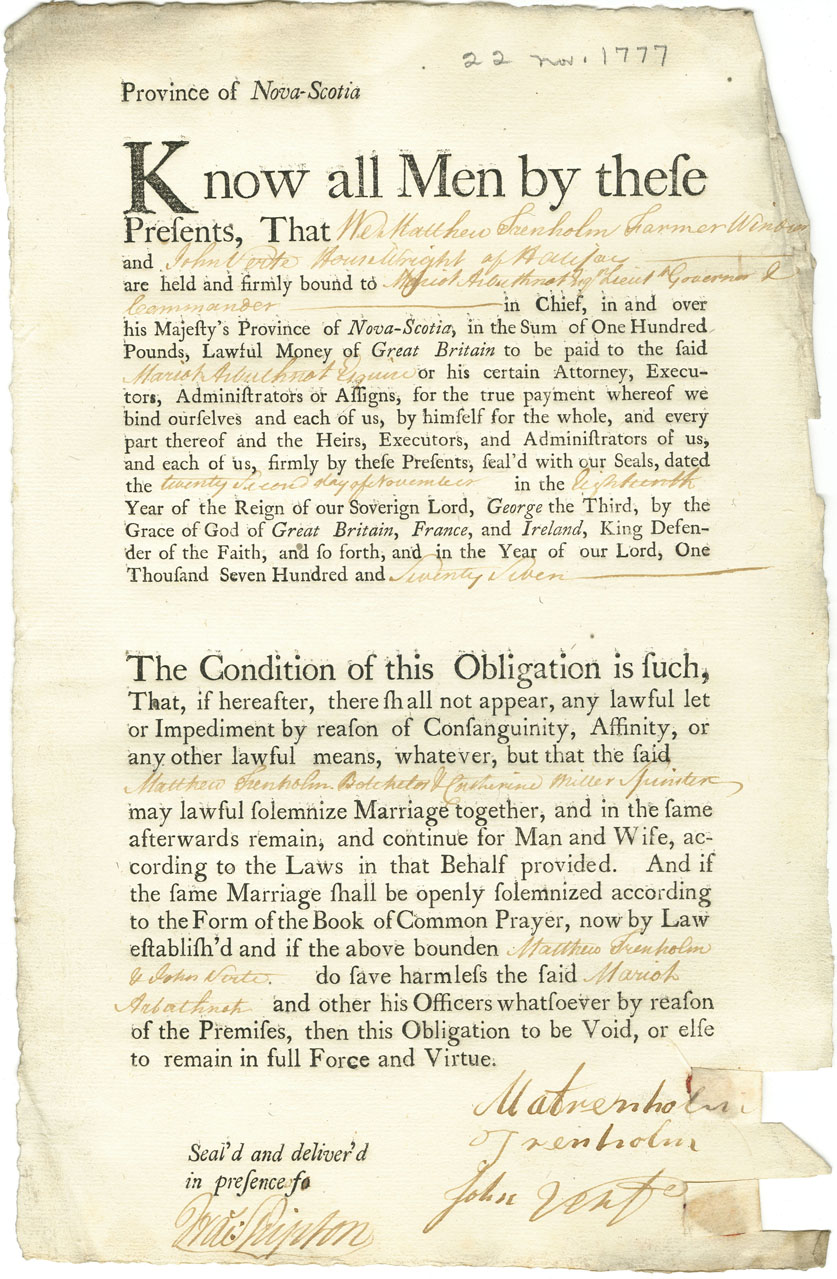 22 nov. 1777
Province of Nova-Scotia
Know all Men by theſe
Preſents, That We Matthew Trenholm Farmer Windsor
and John Verte HouseWright of Halifax
are held and firmly bound to Mariot Arbuthnot Esqr. Lieut. Governor &
Commander in Chief, in and over
his Majeſty's Province of Nova-Scotia, in the Sum of One Hundred
Pounds, Lawful Money of Great Britain to be paid to the ſaid
Mariot Arbuthnot Esquire or his certain Attorney, Execu-
tors, Adminiſtrators or Aſſigns, for the true payment whereof we
bind ourſelves and each of us, by himſelf for the whole, and every
part thereof and the Heirs, Executors, and Adminiſtrators of us,
and each of us, firmly by theſe Preſents, ſeal'd with our Seals, dated
the twenty Second day of November in the Eighteenth
Year of the Reign of our Soverign Lord, George the Third, by the
Grace of God of Great Britain, France, and Ireland, King Defen-
der of the Faith, and ſo forth, and in the Year of our Lord, One
Thouſand Seven Hundred and Seventy Seven
The Condition of this Obligation is ſuch,
That, if hereafter, there ſhall not appear, any lawful let
or Impediment by reaſon of Conſanguinity, Affinity, or
any other lawful means, whatever, but that the ſaid
Matthew Trenholm Batchelor & Catherine Miller Spinster
may lawful ſolemnize Marriage together, and in the ſame
afterwards remain, and continue for Man and Wife, ac-
cording to the Laws in that Behalf provided. And if
the ſame Marriage ſhall be openly ſolemnized according
to the Form of the Book of Common Prayer, now by Law
eſtabliſh'd and if the above bounden Matthew Trenholm
& John Verte. do ſave harmleſs the ſaid Mariot
Arbuthnot and other his Officers whatſoever by reaſon
of the Premiſes, then this Obligation to be Void, or elſe
to remain in full Force and Virtue.
Matrenholm
Trenholm
Seal'd and deliver'd
in preſence fo
John